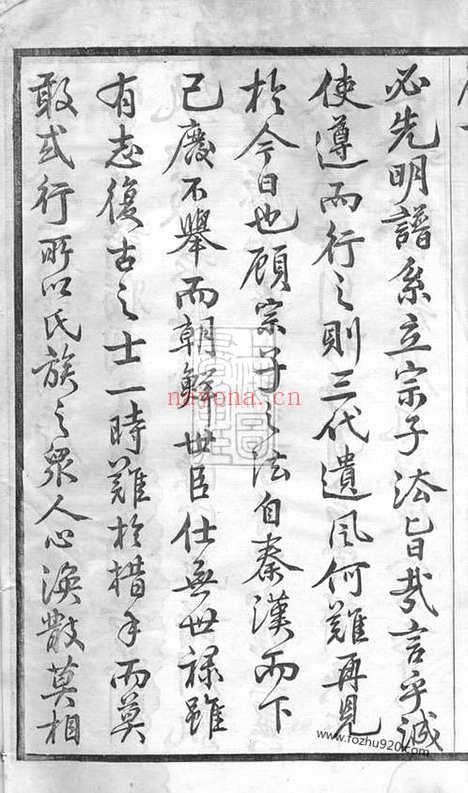 必先明譜系立宗子法旨哉言乎誠
使遵而行之則三代遺風何難再見
於今日也顧宗子之法自秦漢而下
已廢不舉而朝鮮世臣仕無世祿雖
有志復古之士一時難於措手而莫
敢或行所以氏族之眾人心渙散莫相
nayona.cn
www.fozhu920.com